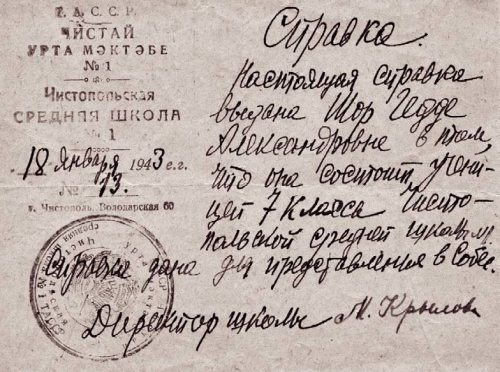 Т. А. С. С. Р.
ЧИСТАЙ
УРТА МӘКТӘБЕ
№ 1
Чистопольская
СРЕДНЯЯ ШКОЛА
№ 1
18 Января 1943 г.
№ 13.
г. Чистополь, Володарская 60
Справка.
Настоящая справка
выдана Шор Гедде
Александровне в том,
что она состоит учени-
цей 7 класса Чисто-
польской средней школы
Справка дана для представления в Собес
Директор школы М. Крылов